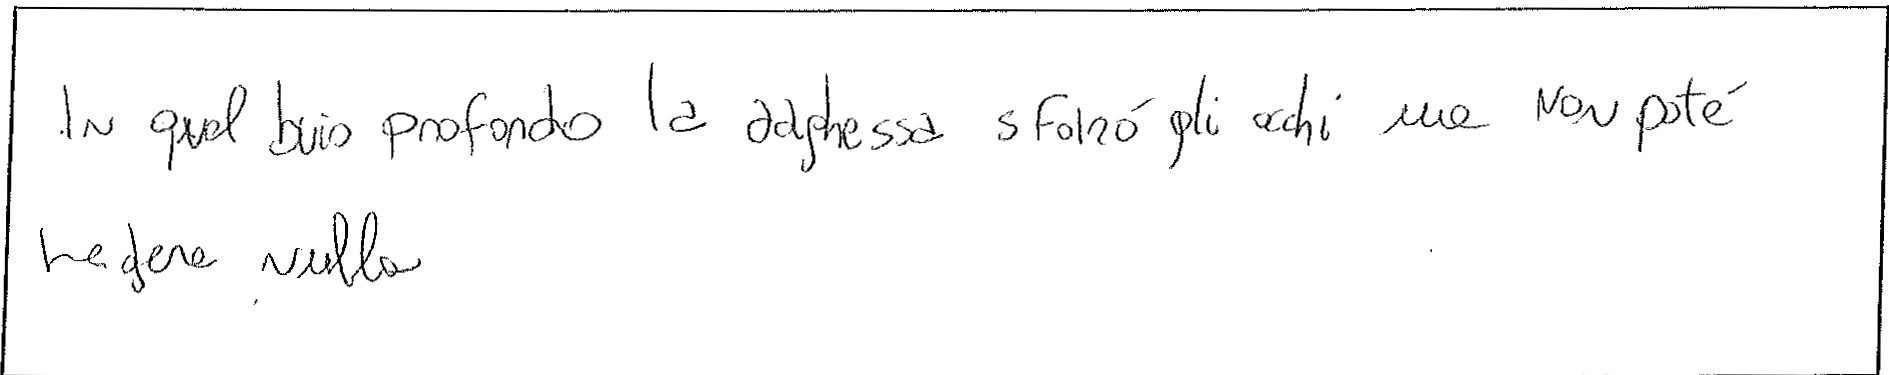 In quel buio profondo la dogaressa sforzó gli occhi ma non poté
vedere nulla